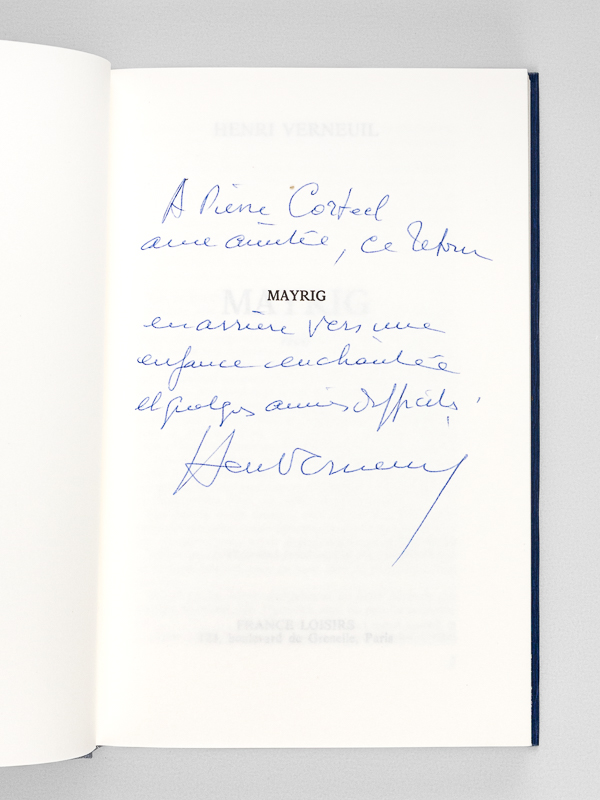 HENRI VERNEUIL
A Pierre Corteel
avec amitié, ce retour
MAYRIG
en arrière vers une
enfance enchantée
et quelques années difficiles.
Henri Verneuil
FRANCE LOISIRS
123, boulevard de Grenelle, Paris